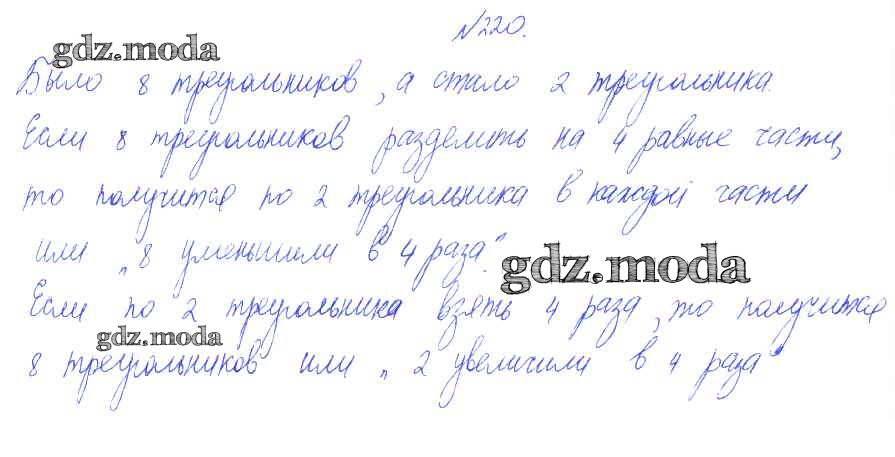 №220.
gdz.moda
Было 8 треугольников, а стало 2 треугольника.
Если 8 треугольников разделить на 4 равные части,
то получится по 2 треугольника в каждой части
или „8 уменьшили в 4 раза".
gdz.moda
Если по 2 треугольника взять 4 раза, то получится
gdz.moda
8 треугольников или „2 увеличили в 4 раза"